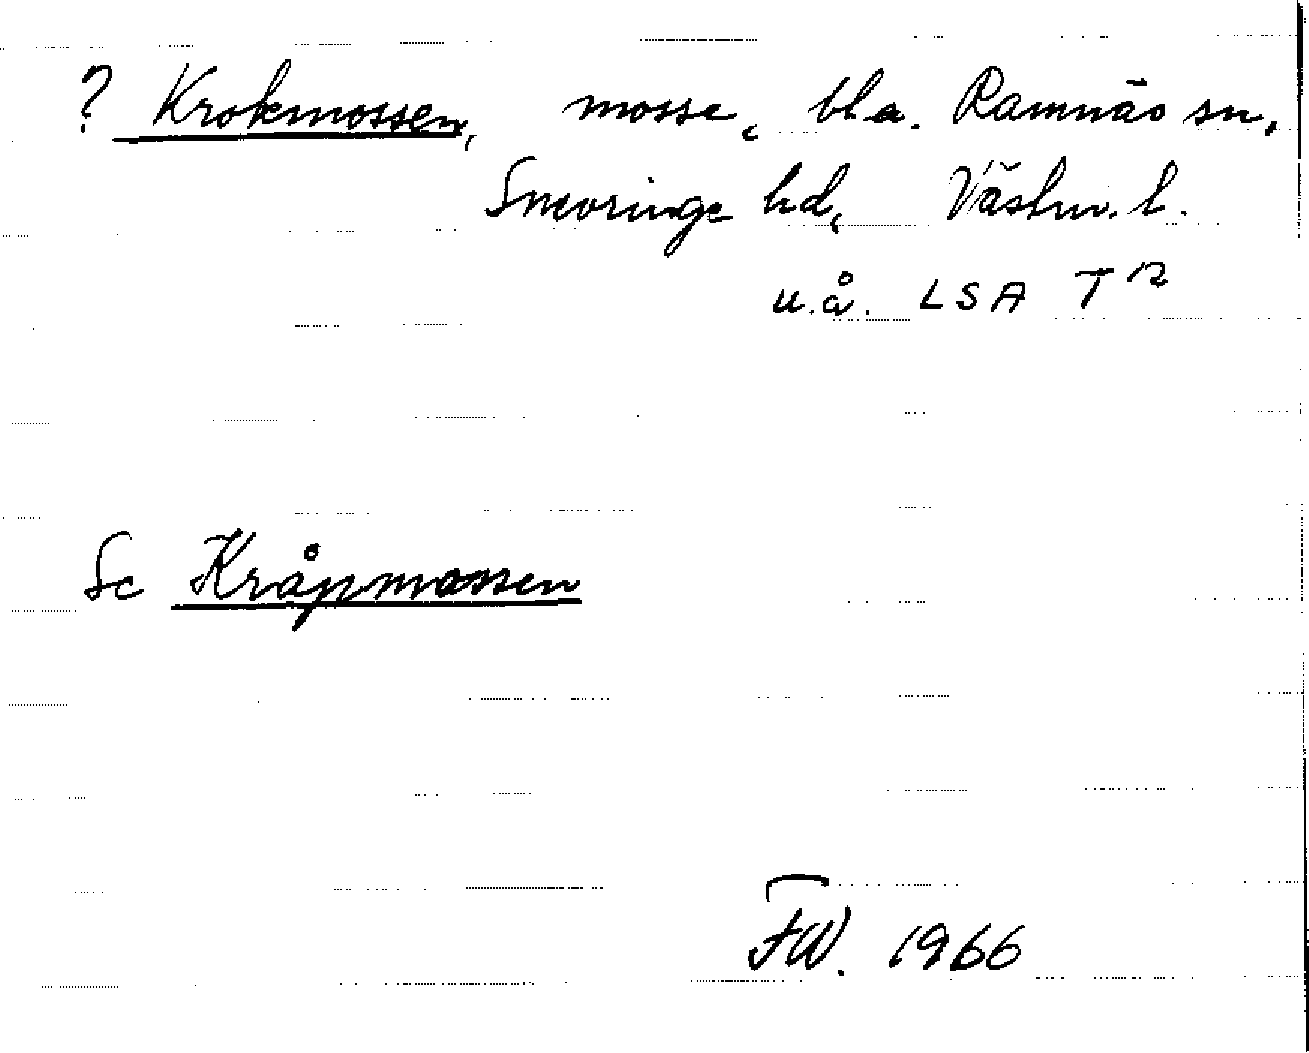 ? Krokmossen, mosse, bl a. Ramnäs sn,
Snevringe hd, Västm. l.
u.å. LSA T 12
Se Kråpmossen
FW. 1966